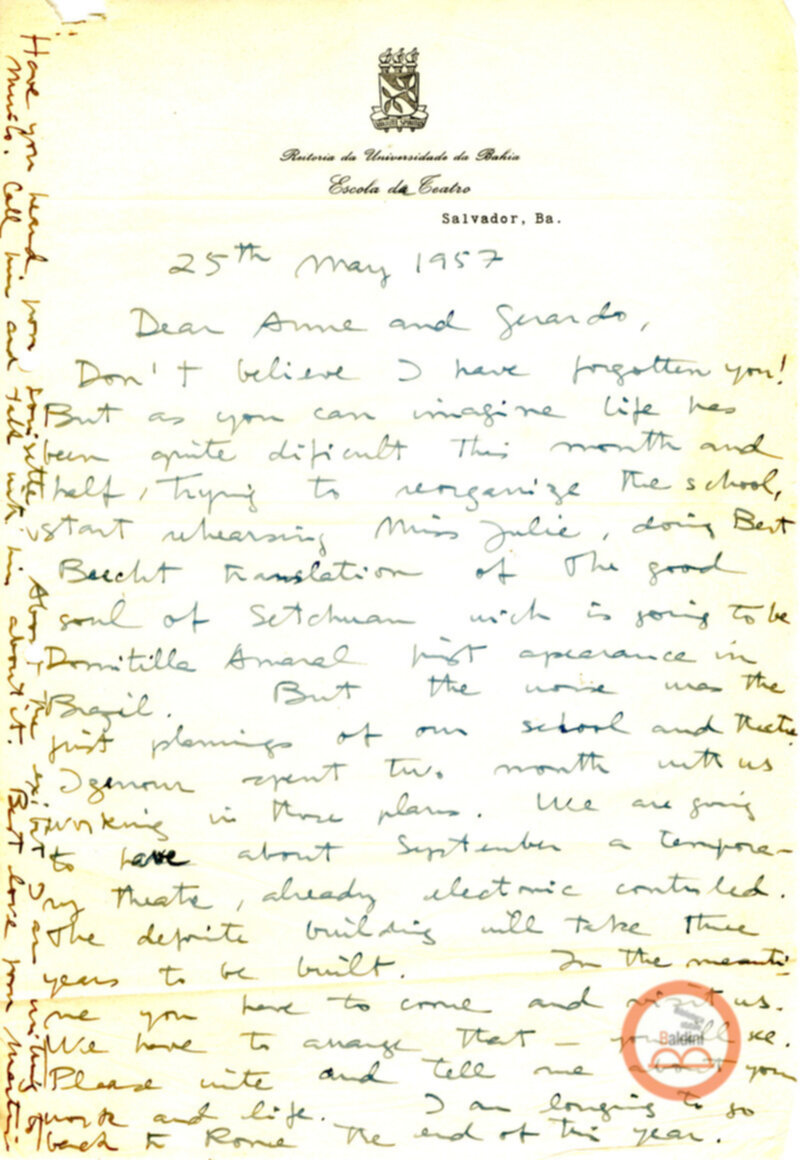 Reitoria da Universidade da Bahia
Escola de Teatro
Salvador, Ba.
25th May 1957
Dear Anne and Gerardo,
Don't believe I have forgotten you!
But as you can imagine life has
been quite dificult this month and
half, trying to reorganize the school,
start rehearsing Miss Julie, doing Bert
Brecht translation of the good
soul of Setchuan wich is going to be
Domitilla Amaral first apearance in
Brazil. But the worse was the
first plannings of our school and theatre
Igenour spent two month with us
working in those plans. We are going
to have about September a tempora-
ry theatre, already electonic controled.
The definite building will take three
years to be built. In the meanti-
me you have to come and visit us.
We have to arrange that — you'll see.
Please write and tell me about your
work and life. I am longing to go
back to Rome the end of this year.
Have you heard from about the I am writing for
Murilo. Call him and talk with him about it. Best love from Martim
Baldini